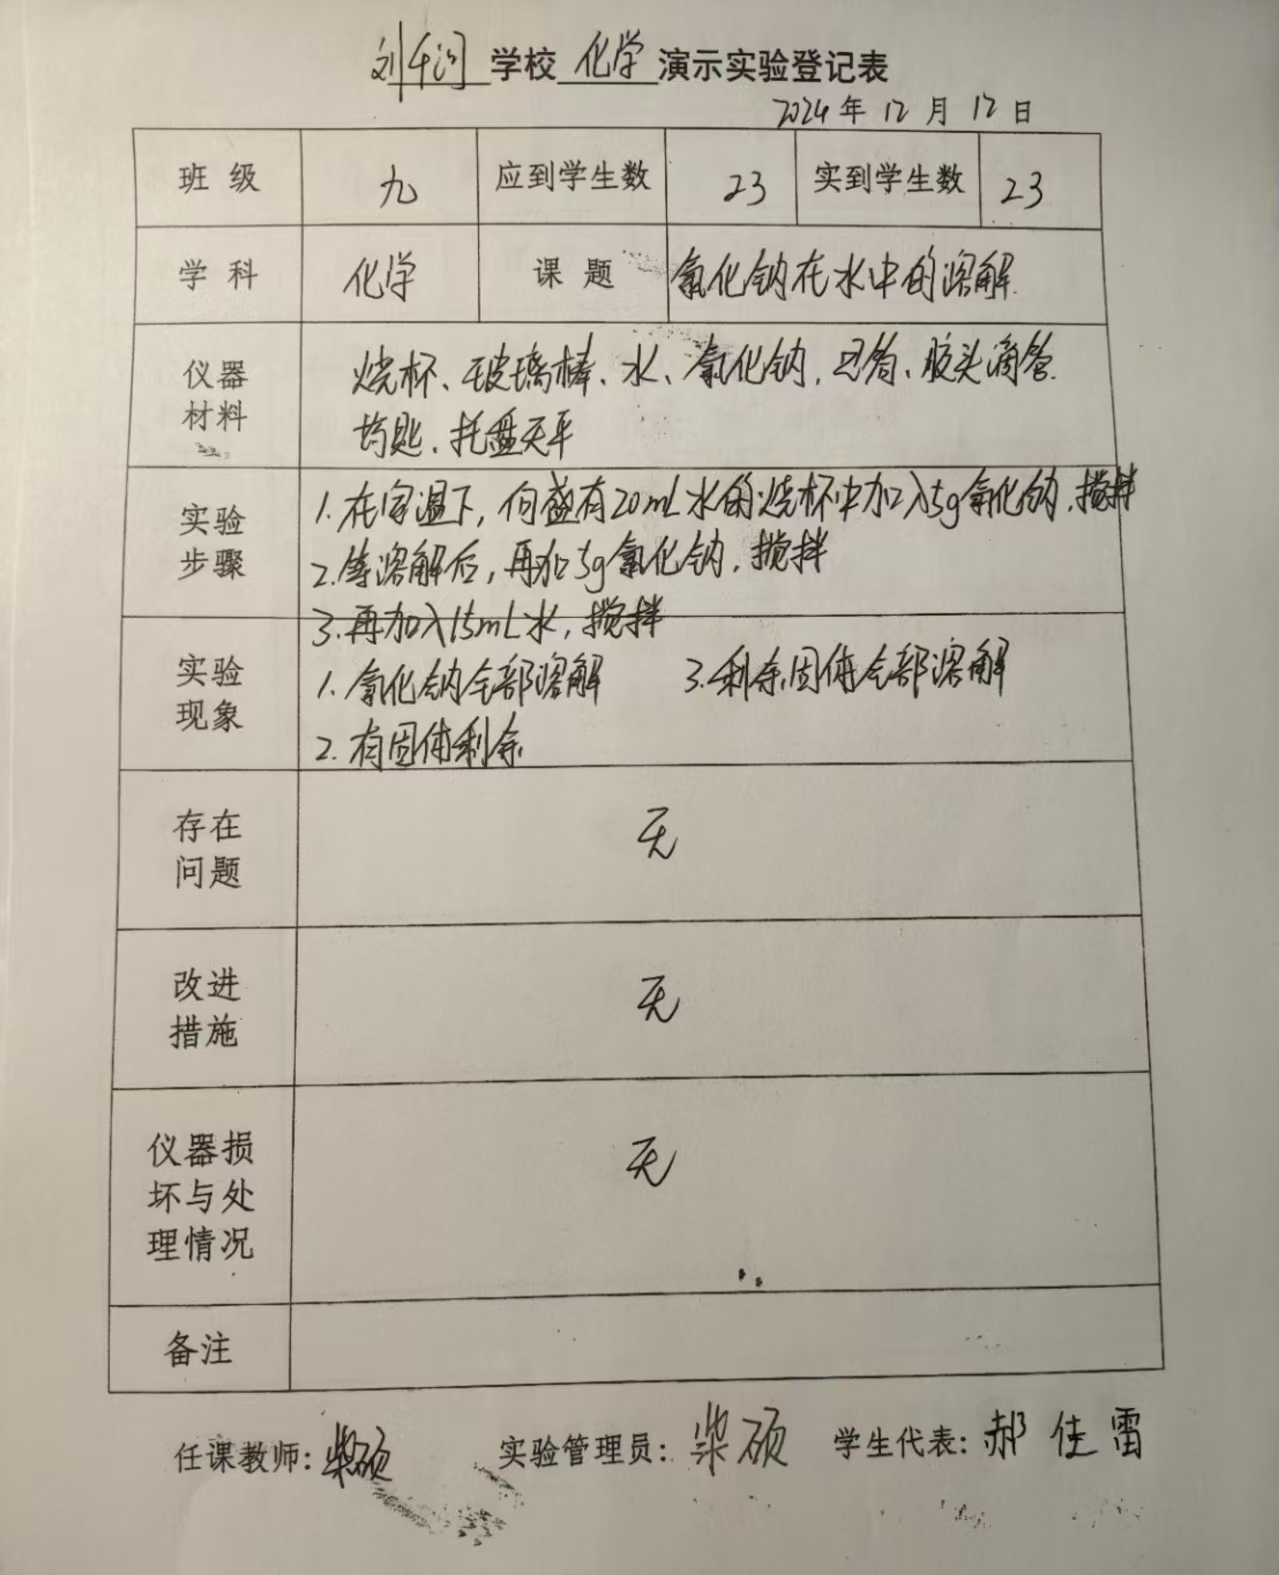 刘 学校 化学 演示实验登记表
2024年 12月 12日
班级 九 应到学生数 23 实到学生数 23
学科 化学 课题 氯化钠在水中的溶解
仪器材料
烧杯、玻璃棒、水、氯化钠、胶头滴管
药匙、托盘天平
实验步骤
1.在室温下，向盛有20mL水的烧杯中加入5g氯化钠，搅拌
2.等溶解后，再加5g氯化钠，搅拌
3.再加入15mL水，搅拌
实验现象
1.氯化钠全部溶解 3.剩余固体全部溶解
2.有固体剩余
存在问题
无
改进措施
无
仪器损坏与处理情况
无
备注
任课教师：柴硕 实验管理员：柴硕 学生代表：郝佳雷